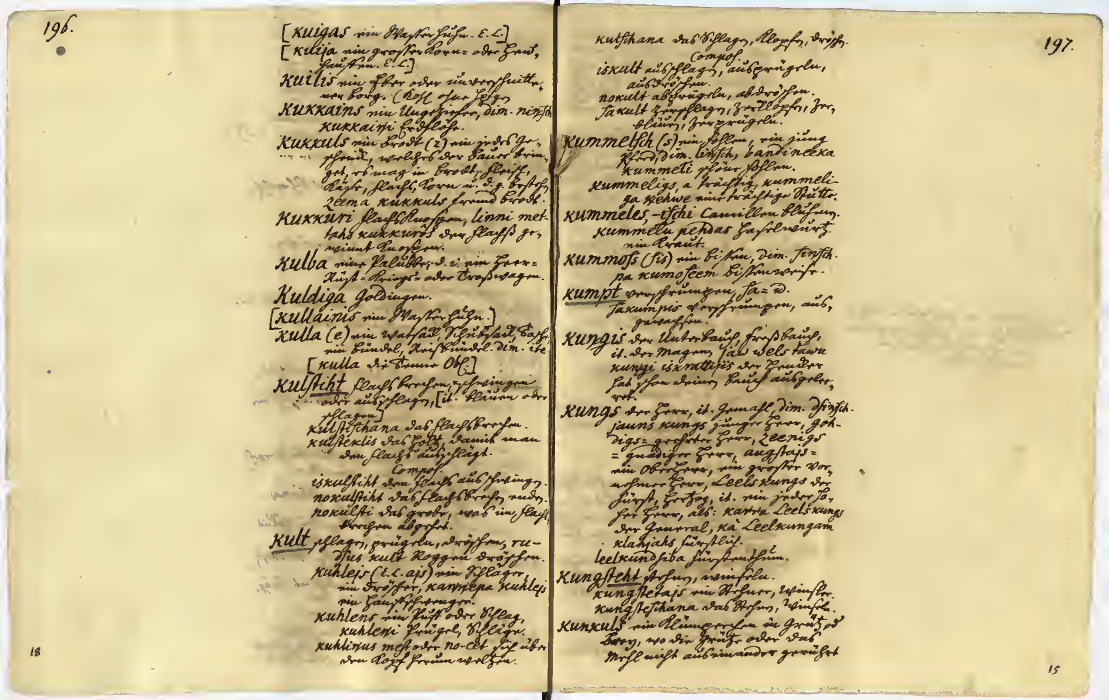 196.
[Kuigas ein Wasserhuhn. E. L.]
[Kuija ein grosser Korn- oder Heu-
hauffen. E. L.]
Kuilis ein Eber oder unverschnitte-
ner Borg.
Kukkains ein Ungeziefer, dim. ninsch
kukkaini Erdflöhe.
Kukkuls ein Brodt (2) ein jedes Ge-
schenk, welches der Bauer brin-
get, es mag in Brodt, Fleisch,
Käse, Flachs, Korn u. d. g. bestehn
zeema kukkuls fremd Brodt.
Kukkuri Flachsknospen, linni met-
tahs kukkurôs der Flachs ge-
winnt Knospen.
Kulba eine Kalubbe, d. i. ein Heer-
Rüst- Kriegs- oder Troßwagen.
Kuldiga Goldingen.
[Kullainis ein Wasserhuhn.]
Kulla (e) ein Watsack, Schubsack, Tasche,
ein Bündel, Reisbündel. dim. ite
[kulla die Tenne Obl.]
Kulstiht Flachs brechen, schwingen
oder ausschlagen, [it. bläuen oder
schlagen]
kulstischana das Flachsbrechen.
kulsteklis das Holtz, damit man
den Flachs ausschlägt.
Compos.
iskulstiht den Flachs ausschwingen.
nokulstiht das Flachsbrechen enden.
nokulsti das grobe, was im Flachs
brechen abgehet.
Kult schlagen, prügeln, dröschen, ru-
dsus kult Roggen dröschen.
kuhlejs (E. L. ajs) ein Schläger
ein Dröscher, kuhlejs
ein
kuhlens ein Puff oder Schlag,
kuhleni Prügel, Schläge.
kuhlinus mest oder no-eet sich über
den Kopf herum weltzen.
18
197.
kulschana das Schlagen, Klopfen, dröschen.
Compos.
iskult ausschlagen, ausprügeln,
ausdröschen.
nokult abprügeln, abdröschen.
sakult zerschlagen, zerklopfen, zer-
bläuen, zerprügeln.
Kummelsch (s) ein Fohlen, ein jung
Pferd, dim. linsch, bandineeka
kummeli schöne Fohlen.
kummeligs, a trächtig, kummeli-
ga kehwe eine trächtige Stutte.
Kummeles, -ischi Camillen Bluhmen.
kummelu pehdas Haselwurtz
ein Kraut.
Kummoss (sis) ein Bissen, dim. sinsch.
pa kumoseem Bissenweise.
kumpt verschrumpen, sa- id.
sakumpis verschrumpen, aus-
gewachsen.
Kungis der Unterbauch, Freßbauch,
it. der Magen, jau wels tawu
kungi iskrattijis der Hencker
hat schon deinen Bauch ausgelee-
ret.
Kungs der Herr, it. Gemahl, dim. dsinsch.
jauns kungs junger Herr, god-
digs- geehrter Herr, zeenigs
- gnädiger Herr, augstajs-
ein Oberherr, ein grosser vor-
nehmer Herr, Leels kungs der
Fürst, Hertzog, it. ein jeder ho-
her Herr, als: karra Leelskungs
der General, kâ Leelkungam
klahjahs fürstlich.
leelkundsiba Fürstenthum.
Kungsteht stehnen, winseln.
kungstetajs ein Stehner, Winsler.
kungsteschana das Stehnen, Winseln.
Kunkuls ein Klümperchen in Grütz od
Brey, wo die Grütze oder das
Mehl nicht auseinander gerühret
15